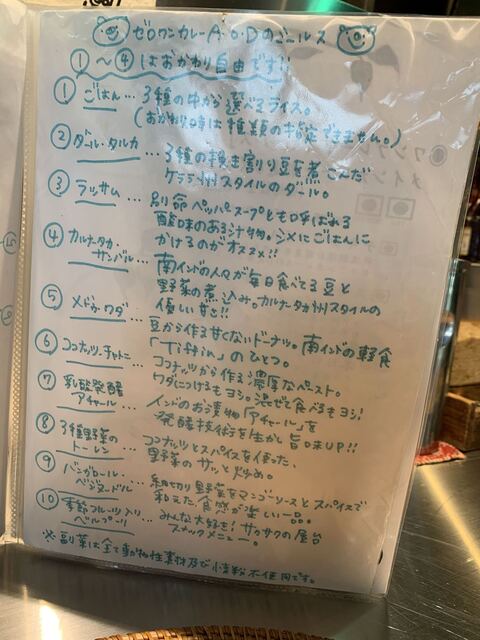 ゼロワンカレーA.o.Dのミールス
①〜④はおかわり自由です!!
① ごはん…3種の中から選べるライス。
(おかわり時は種類の指定できません。)
② ダール・タルカ…3種の挽き割り豆を煮こんだ
ケララ州スタイルのダール。
③ ラッサム…別命ペッパースープとも呼ばれる
酸味のある汁物。シメにごはんに
かけるのがオススメ!!
④ カルナータカ・サンバル…南インドの人々が毎日食べてる豆と
野菜の煮込み。カルナータカ州スタイルの
優しい甘さ!!
⑤ メドゥ・ワダ…豆から作る甘くないドーナツ。南インドの軽食
「Tiffin」のひとつ。
⑥ ココナッツ・チャトニ…ココナッツから作る濃厚なペースト。
ワダにつけるもヨシ。混ぜて食べるもヨシ!
⑦ 乳酸発酵アチャール…インドのお漬物「アチャール」を
発酵技術を生かし旨味UP!!
⑧ 3種野菜のトーレン…ココナッツとスパイスを使った、
野菜のサッと炒め。
⑨ バンガロール・ベジヌードル…細切り野菜をマンゴーソースとスパイスで
和えた、食感が楽しい一品。
⑩ 季節フルーツ入りベルプーリ…みんな大好き!サクサクの屋台
スナックメニュー。
※副菜は全て動物性素材及び小麦粉不使用です。
ワン
メイン